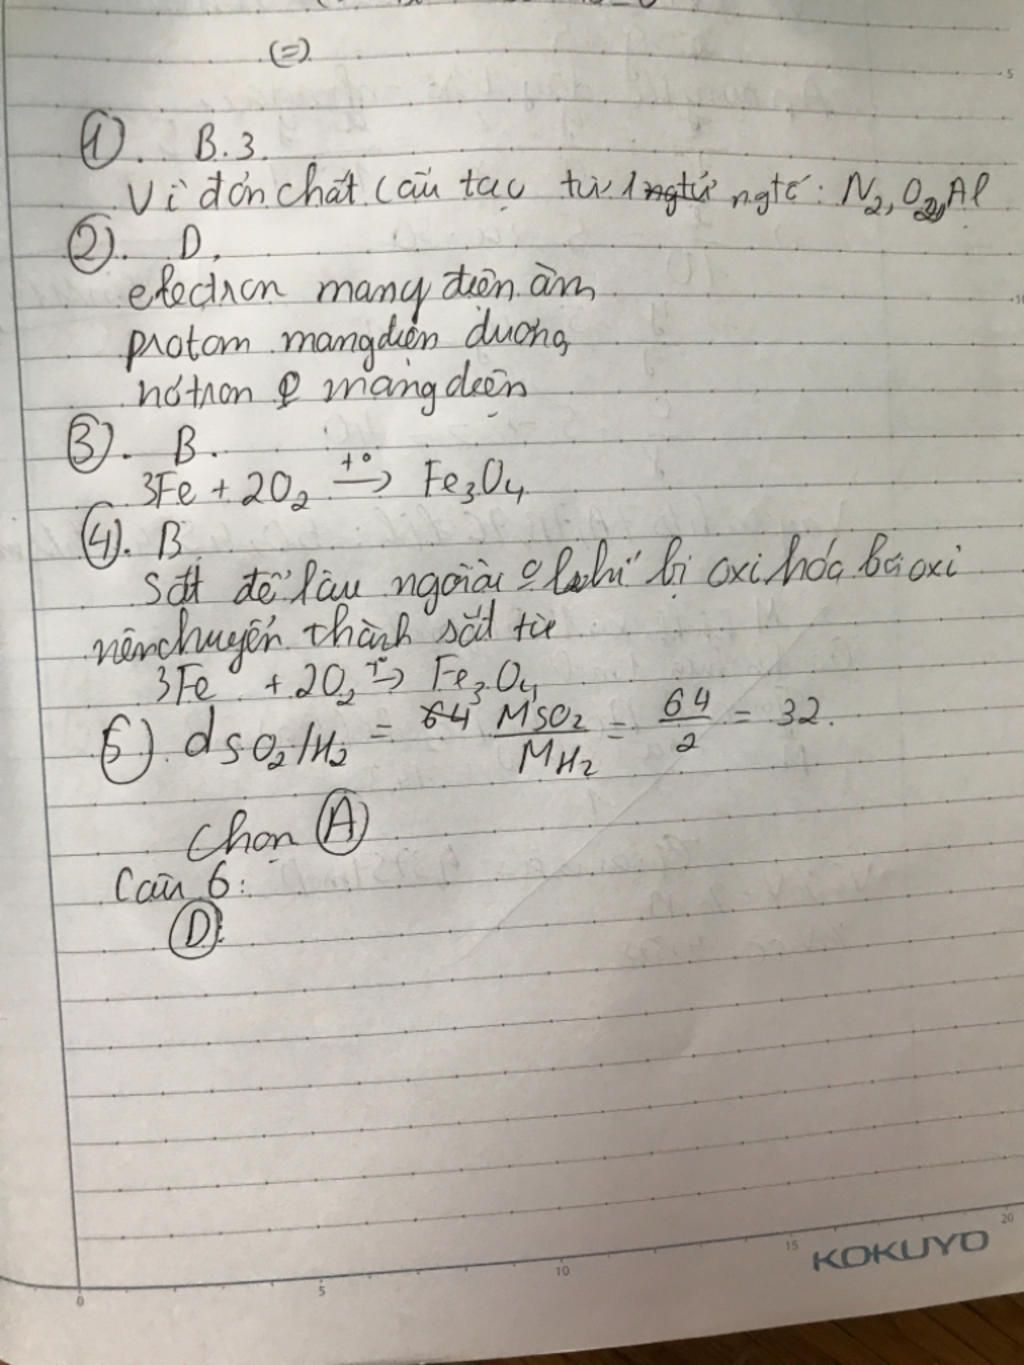 (=)
①. B.3.
Vì đơn chất cấu tạo từ 1 ngtố: N₂, O₂, Al
②. D.
electron mang điện âm
protom mang điện dương
nơtron 0 mang điện
③. B.
3Fe + 2O₂ →^{t°} Fe₃O₄
④. B
sắt để lâu ngoài khí bị oxi hóa bởi oxi
nên chuyển thành sắt từ
3Fe + 2O₂ →^{t°} Fe₃O₄
⑤) d SO₂/H₂ = 64 MSO₂/MH₂ = 64/2 = 32.
Chọn Ⓐ
Câu 6:
Ⓓ.
0 5 10 15 20
KOKUYO